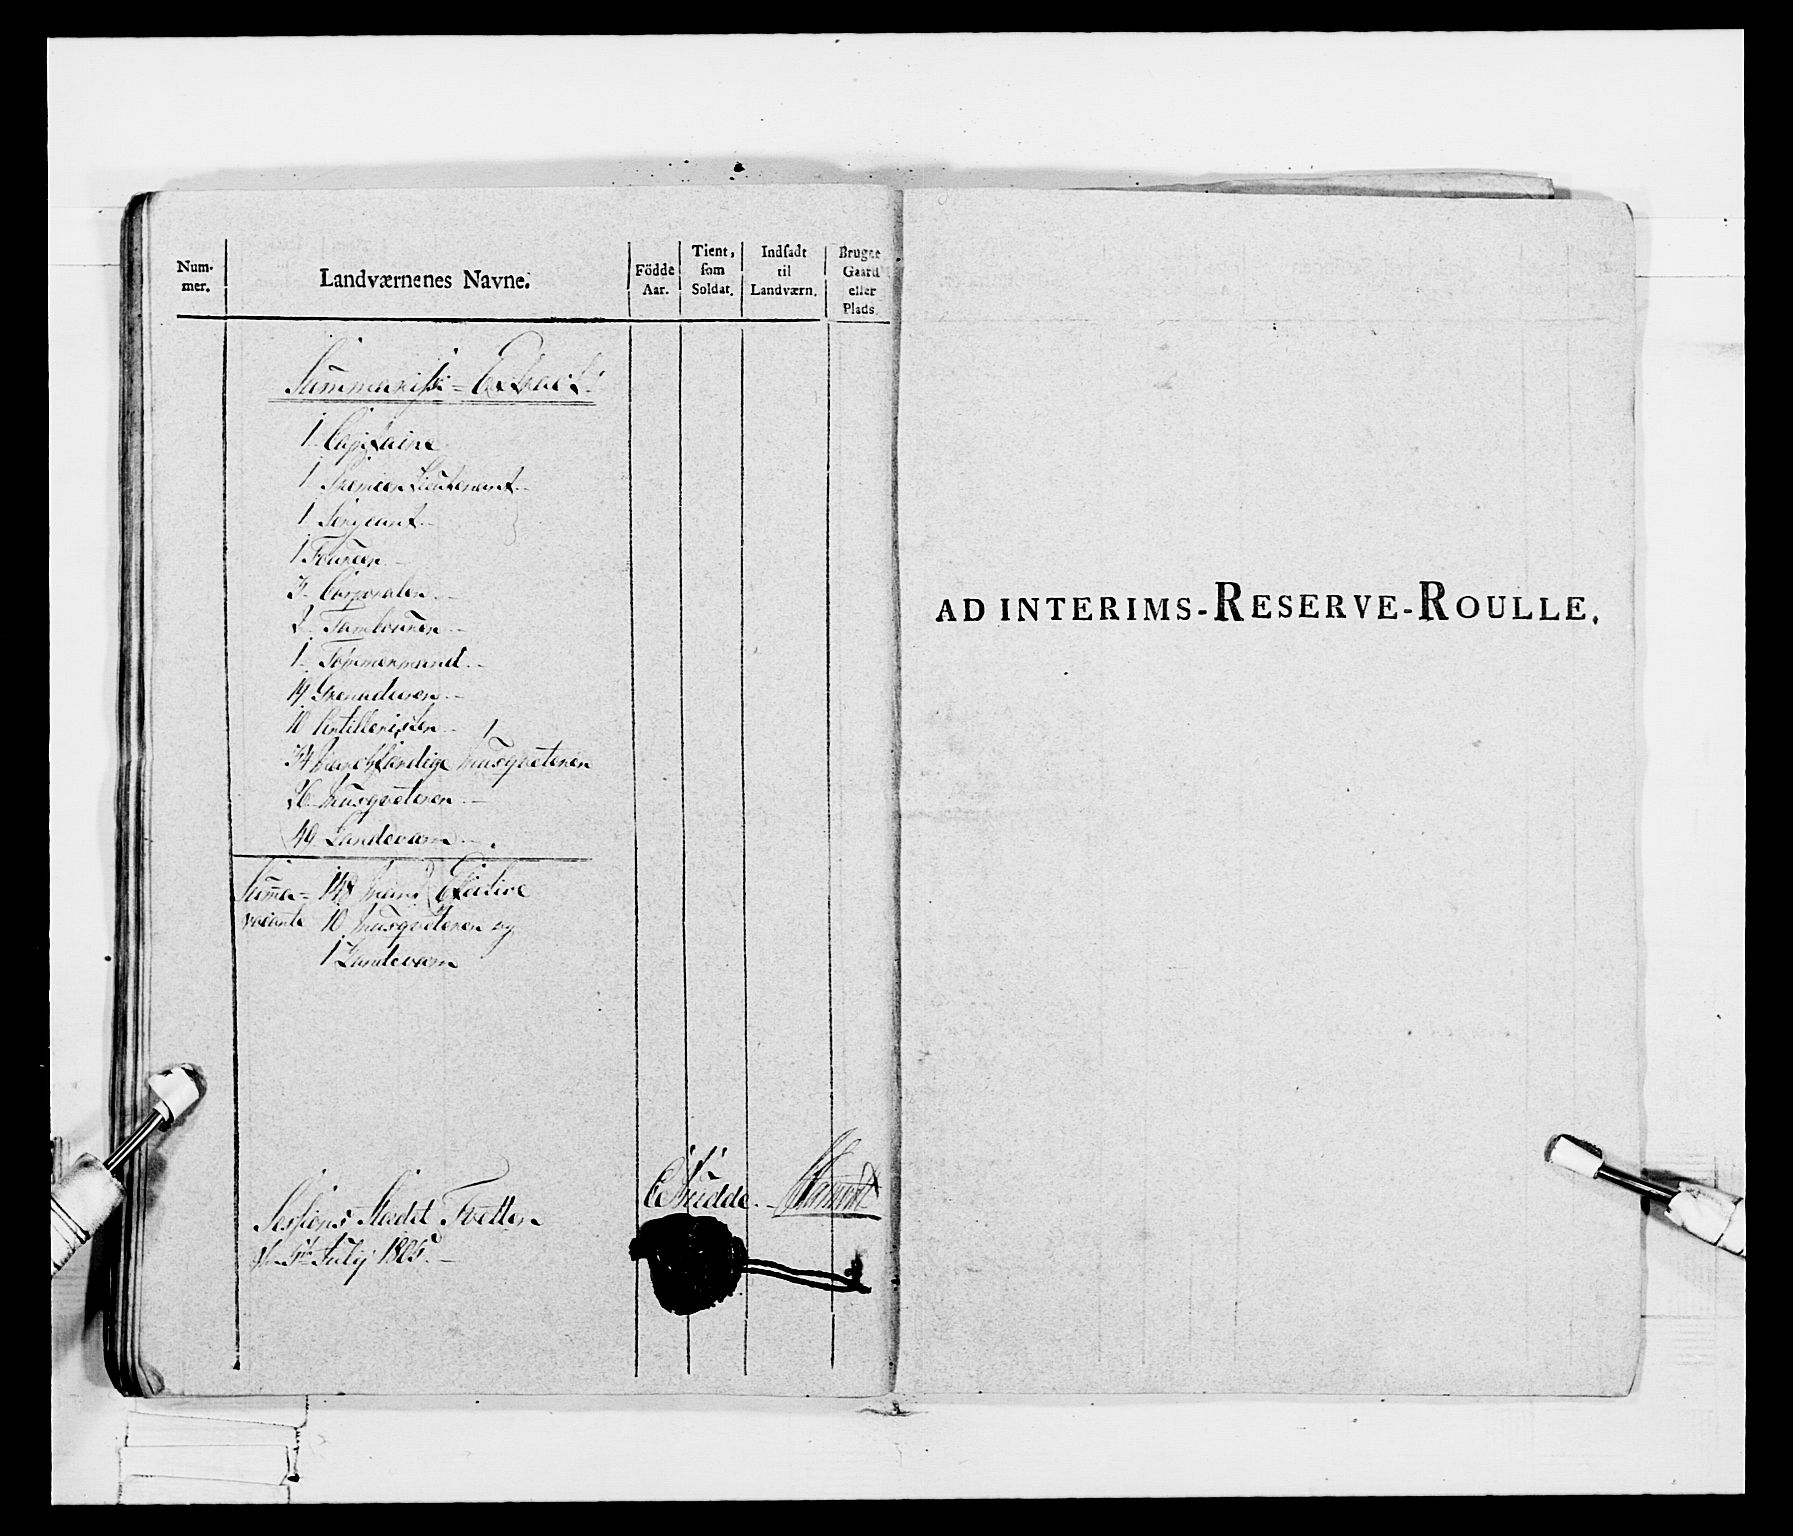 Num-
mer.
Landværnenes Navne.
Födde
Aar.
Tient,
som
Soldat.
Indsadt
til
Landværn.
Bruger
Gaard
eller
Plads
Summarisk=Extract.
1 Capitaine
1 Premier Lieutenant
1 Sergeant
1 Fourier
3 Corporaler
2 Tambourer
1 Tømmermand
19 Grenaderer
10 Artillerister
34 Musqueterer
26 Musqueterer
49 Landeværn
Summa= 148 Mand Efective
vacante 10 Musqueterer og
1 Landeværn
Sessions Stædet Tvetten
July 1805
AD INTERIMS-RESERVE-ROULLE.